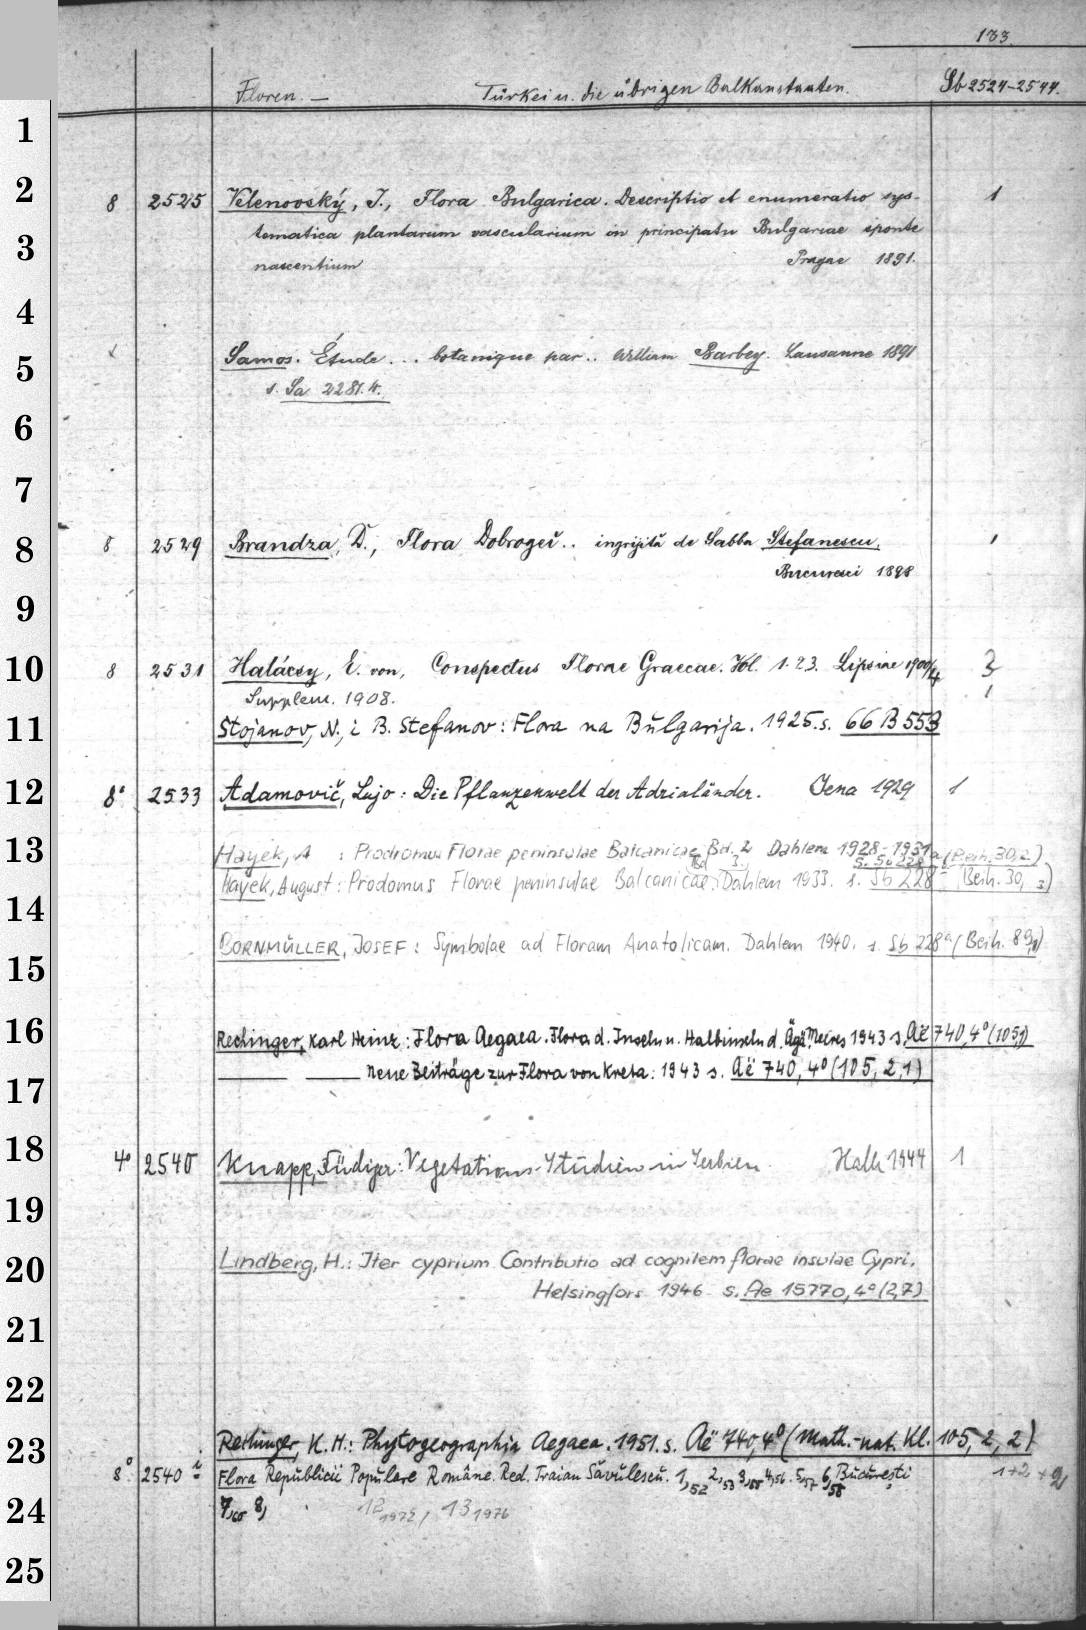 133.
Floren. — Türkei u. die übrigen Balkanstaaten. Sb 2524-2544.
1
2
8 2525 Velenovský, J., Flora Bulgarica. Descriptio et enumeratio sys- 1
tematica plantarum vascularium in principatu Bulgariae sponte
3
nascentium Pragae 1891.
4
Samos. Étude... botanique par.. William Barbey. Lausanne 1891
5
s. Sa 2281.4.
6
7
8
8 2529 Brandza, D., Flora Dobrogeĭ.. ingrijită de Sabba Stefanescu. 1
Bucuresci 1898
9
10
8 2531 Halácsy, E. von, Conspectus Florae Graecae. Vol. 1.2.3. Lipsiae 1900/4 3
Supplem. 1908. 1
11
Stojanov, N., i B. Stefanov: Flora na Bŭlgarija. 1925. s. 66 B 553
12
8° 2533 Adamovič, Lujo: Die Pflanzenwelt der Adrialänder. Jena 1929 1
13
Hayek, A : Prodromus Florae peninsulae Balcanicae Bd. 2 Dahlem 1928-1931
Bd 3. s. Sb 228 a (Beih. 30,2)
Hayek, August: Prodomus Florae peninsulae Balcanicae. Dahlem 1933. s. Sb 228 a (Beih. 30, 3)
14
BORNMÜLLER, JOSEF: Symbolae ad Floram Anatolicam. Dahlem 1940. s. Sb 228a (Beih. 89,1)
15
16
Rechinger, Karl Heinz: Flora Aegaea. Flora d. Inseln u. Halbinseln d. Ägä. Meeres 1943 s. Aë 740, 4° (105,1)
— — neue Beiträge zur Flora von Kreta. 1943 s. Aë 740, 4° (105, 2,1)
17
18
4° 2540 Knapp, Rüdiger: Vegetations-Studien in Serbien Halle 1944 1
19
20
Lindberg, H.: Iter cyprium Contributio ad cognitem florae insulae Cypri.
Helsingfors 1946 s. Ae 15770, 4° (2,7)
21
22
23
Rechinger, K. H.: Phytogeographia Aegaea. 1951. s. Aë 740, 4° (Math.-nat. Kl. 105, 2, 2)
8° 2540 i Flora Republicii Populare Române. Red. Traian Săvulescu. 1,52 2,53 3,55 4,56 5,57 6,58 București 1+2 +9
24
7,60 8, 12 1972, 13 1976
25